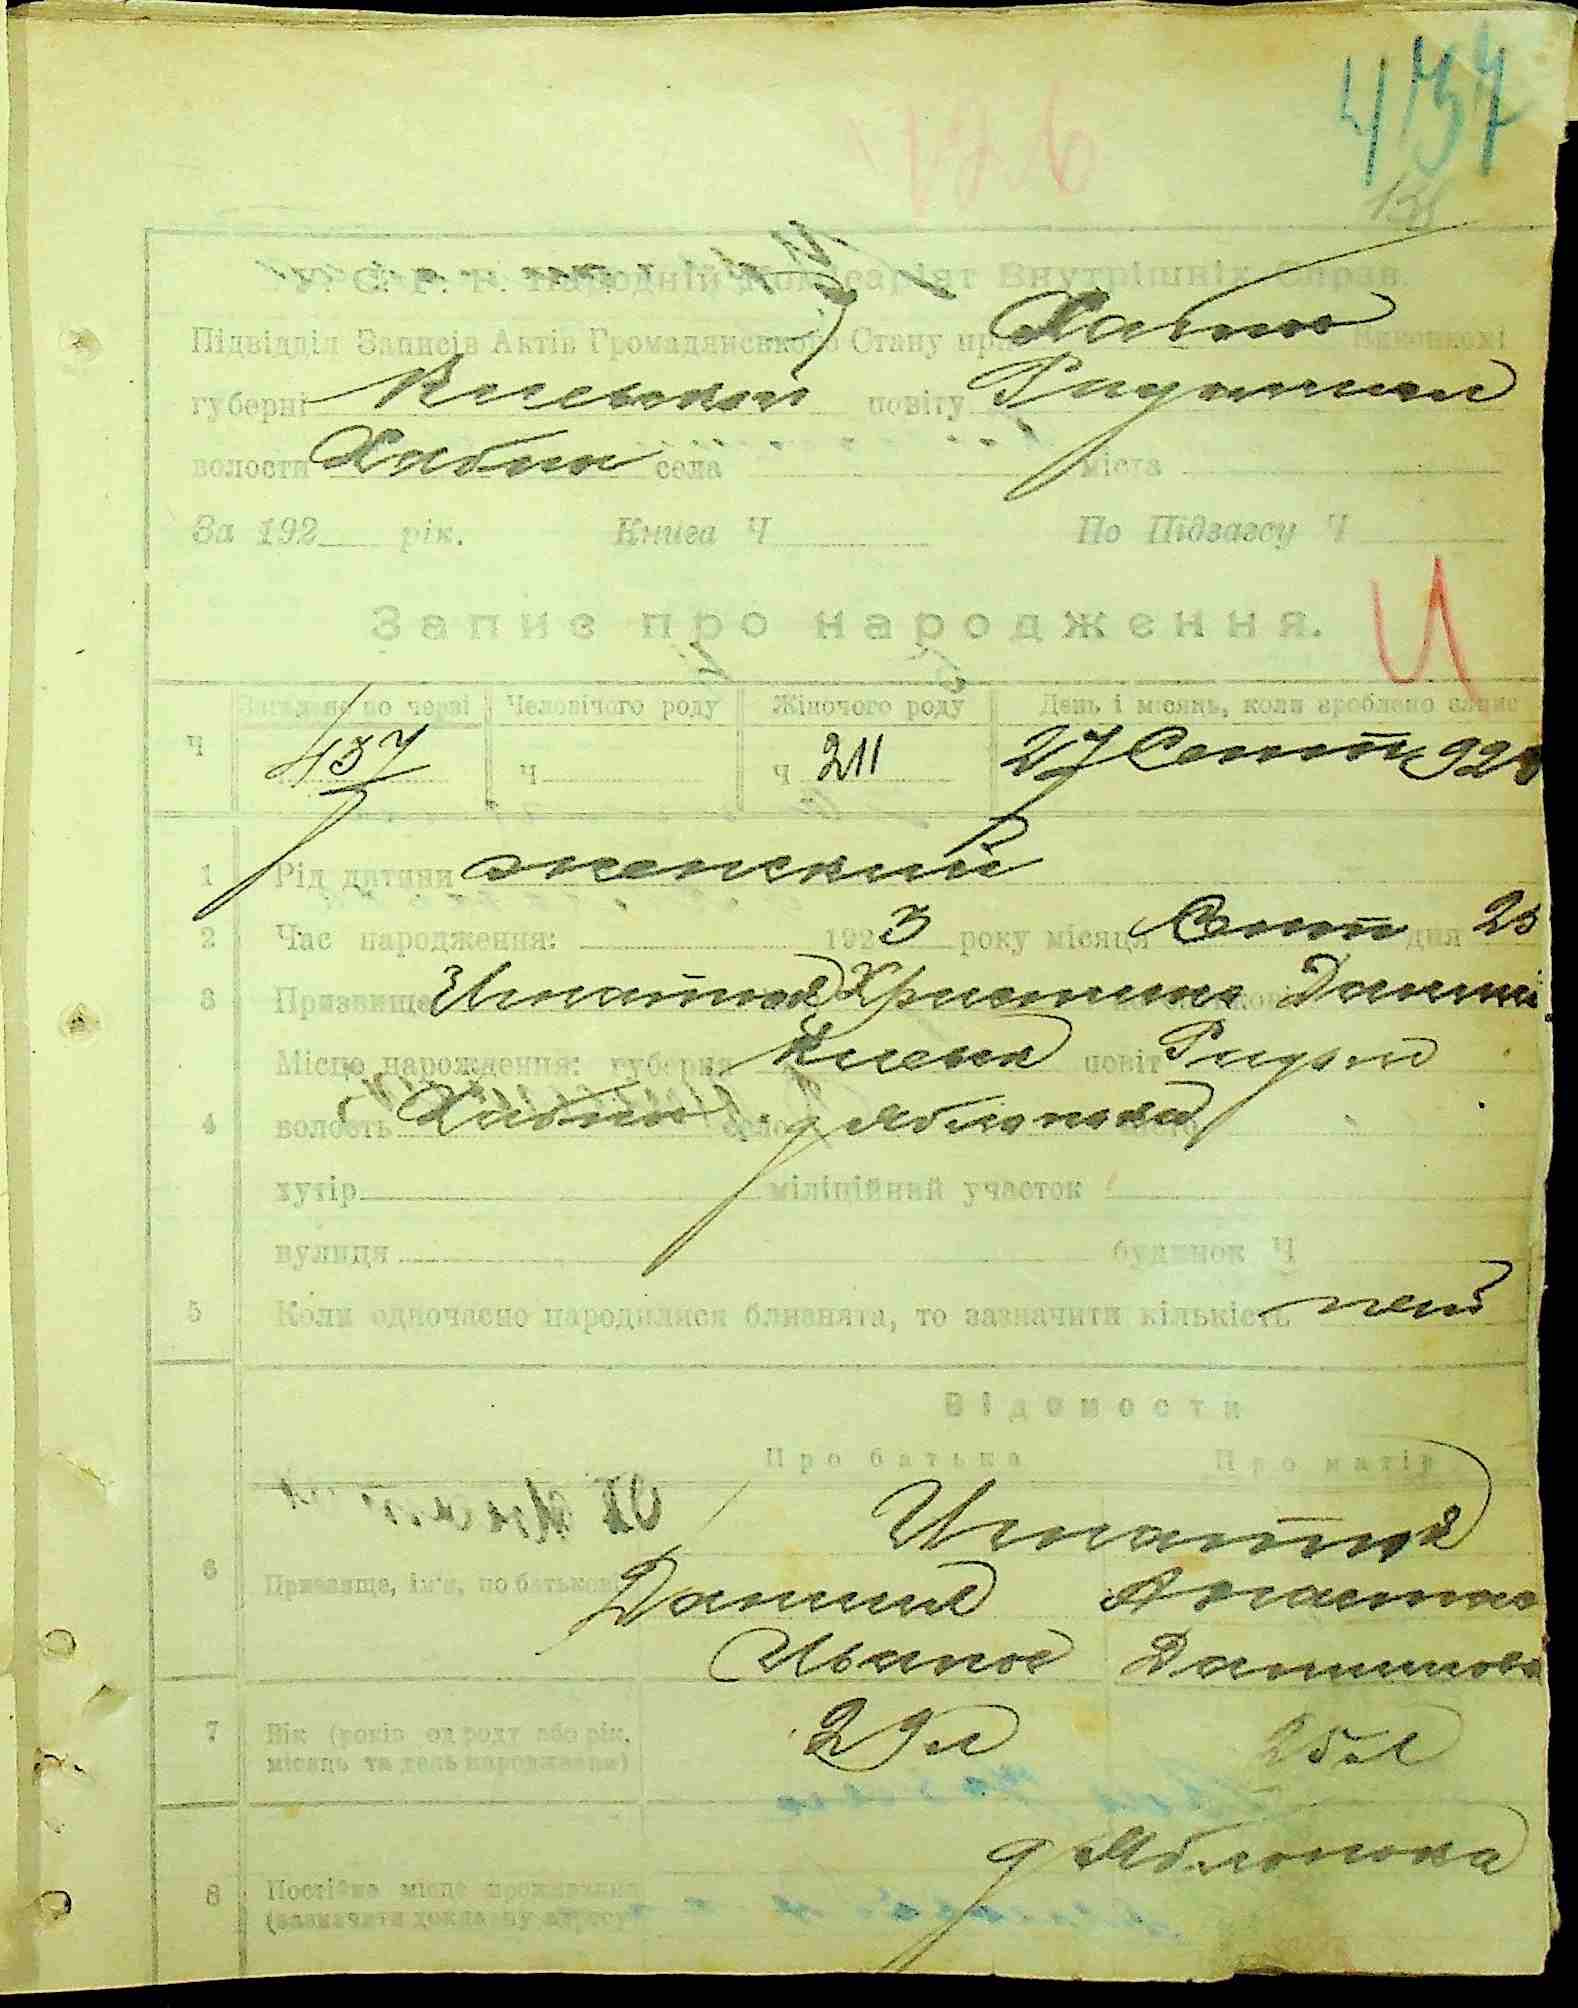 437
У. С. Р. Р. Народній Комісаріят Внутрішніх Справ.
Підвідділ Записів Актів Громадянського Стану при Хабно Виконкомі
губерні Киевской повіту Радомысл
волости Хабно села міста
За 192 рік. Книга Ч По Підзагсу Ч
Запис про народження.
И
Загально по черзі Чоловічого роду Жіночого роду День і місяць, коли зроблено запис
Ч 437 Ч Ч 211 27 Сент 923
1 Рід дитини женский
2 Час народження: 1923 року місяця Сент дня 25
3 Призвище Игнатюк Христина Данил
Місце народження: губерня Киевск повіт Радом
4 волость Хабно село д Яблоновка
хутір міліційний участок
вулиця будинок Ч
5 Коли одночасно народилися близнята, то зазначити кількість нет
Відомости
Про батька Про матір
Игнатюк
6 Призвище, ім'я, по батькові Даниил Анастас
Иванов Данилова
7 Вік (років од роду або рік, 29 л 25 л
місяць та день народження)
д Яблоновка
8 Постійне місце проживання
(зазначити докладну адресу)